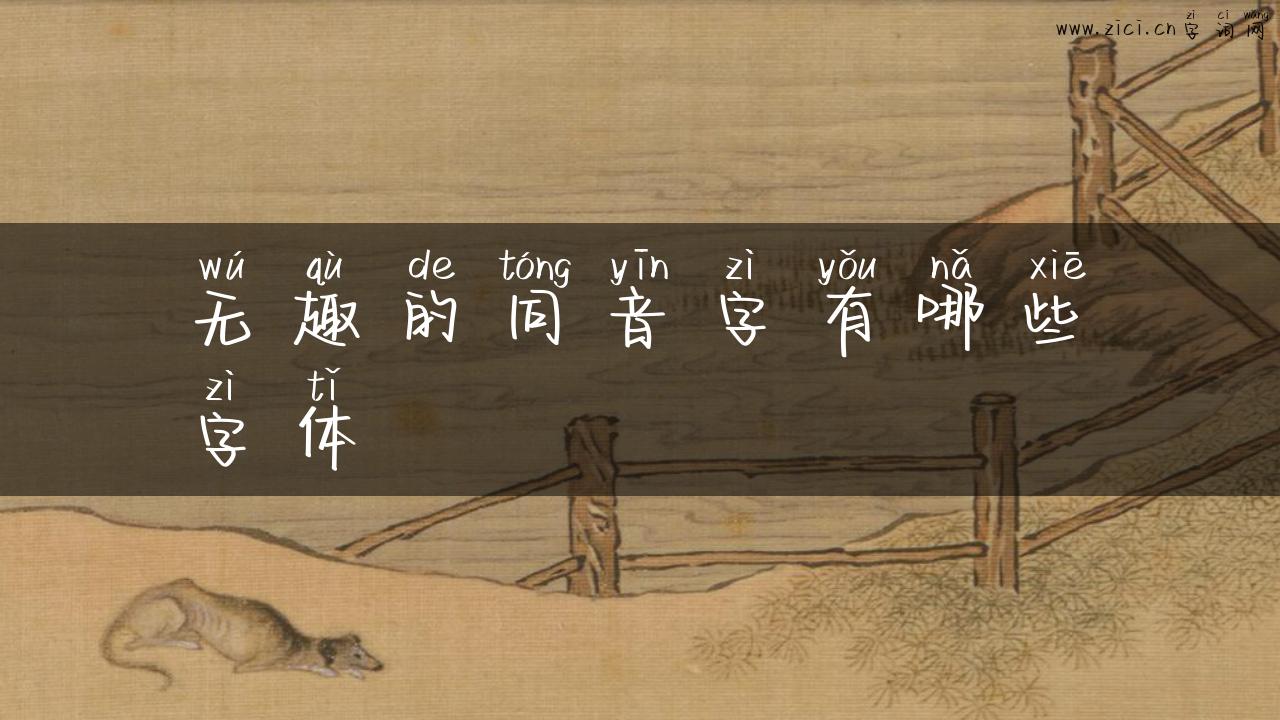 zì cí wǎng
www.zici.cn 字词网
wú qù de tóng yīn zì yǒu nǎ xiē
无趣的同音字有哪些
zì tǐ
字体